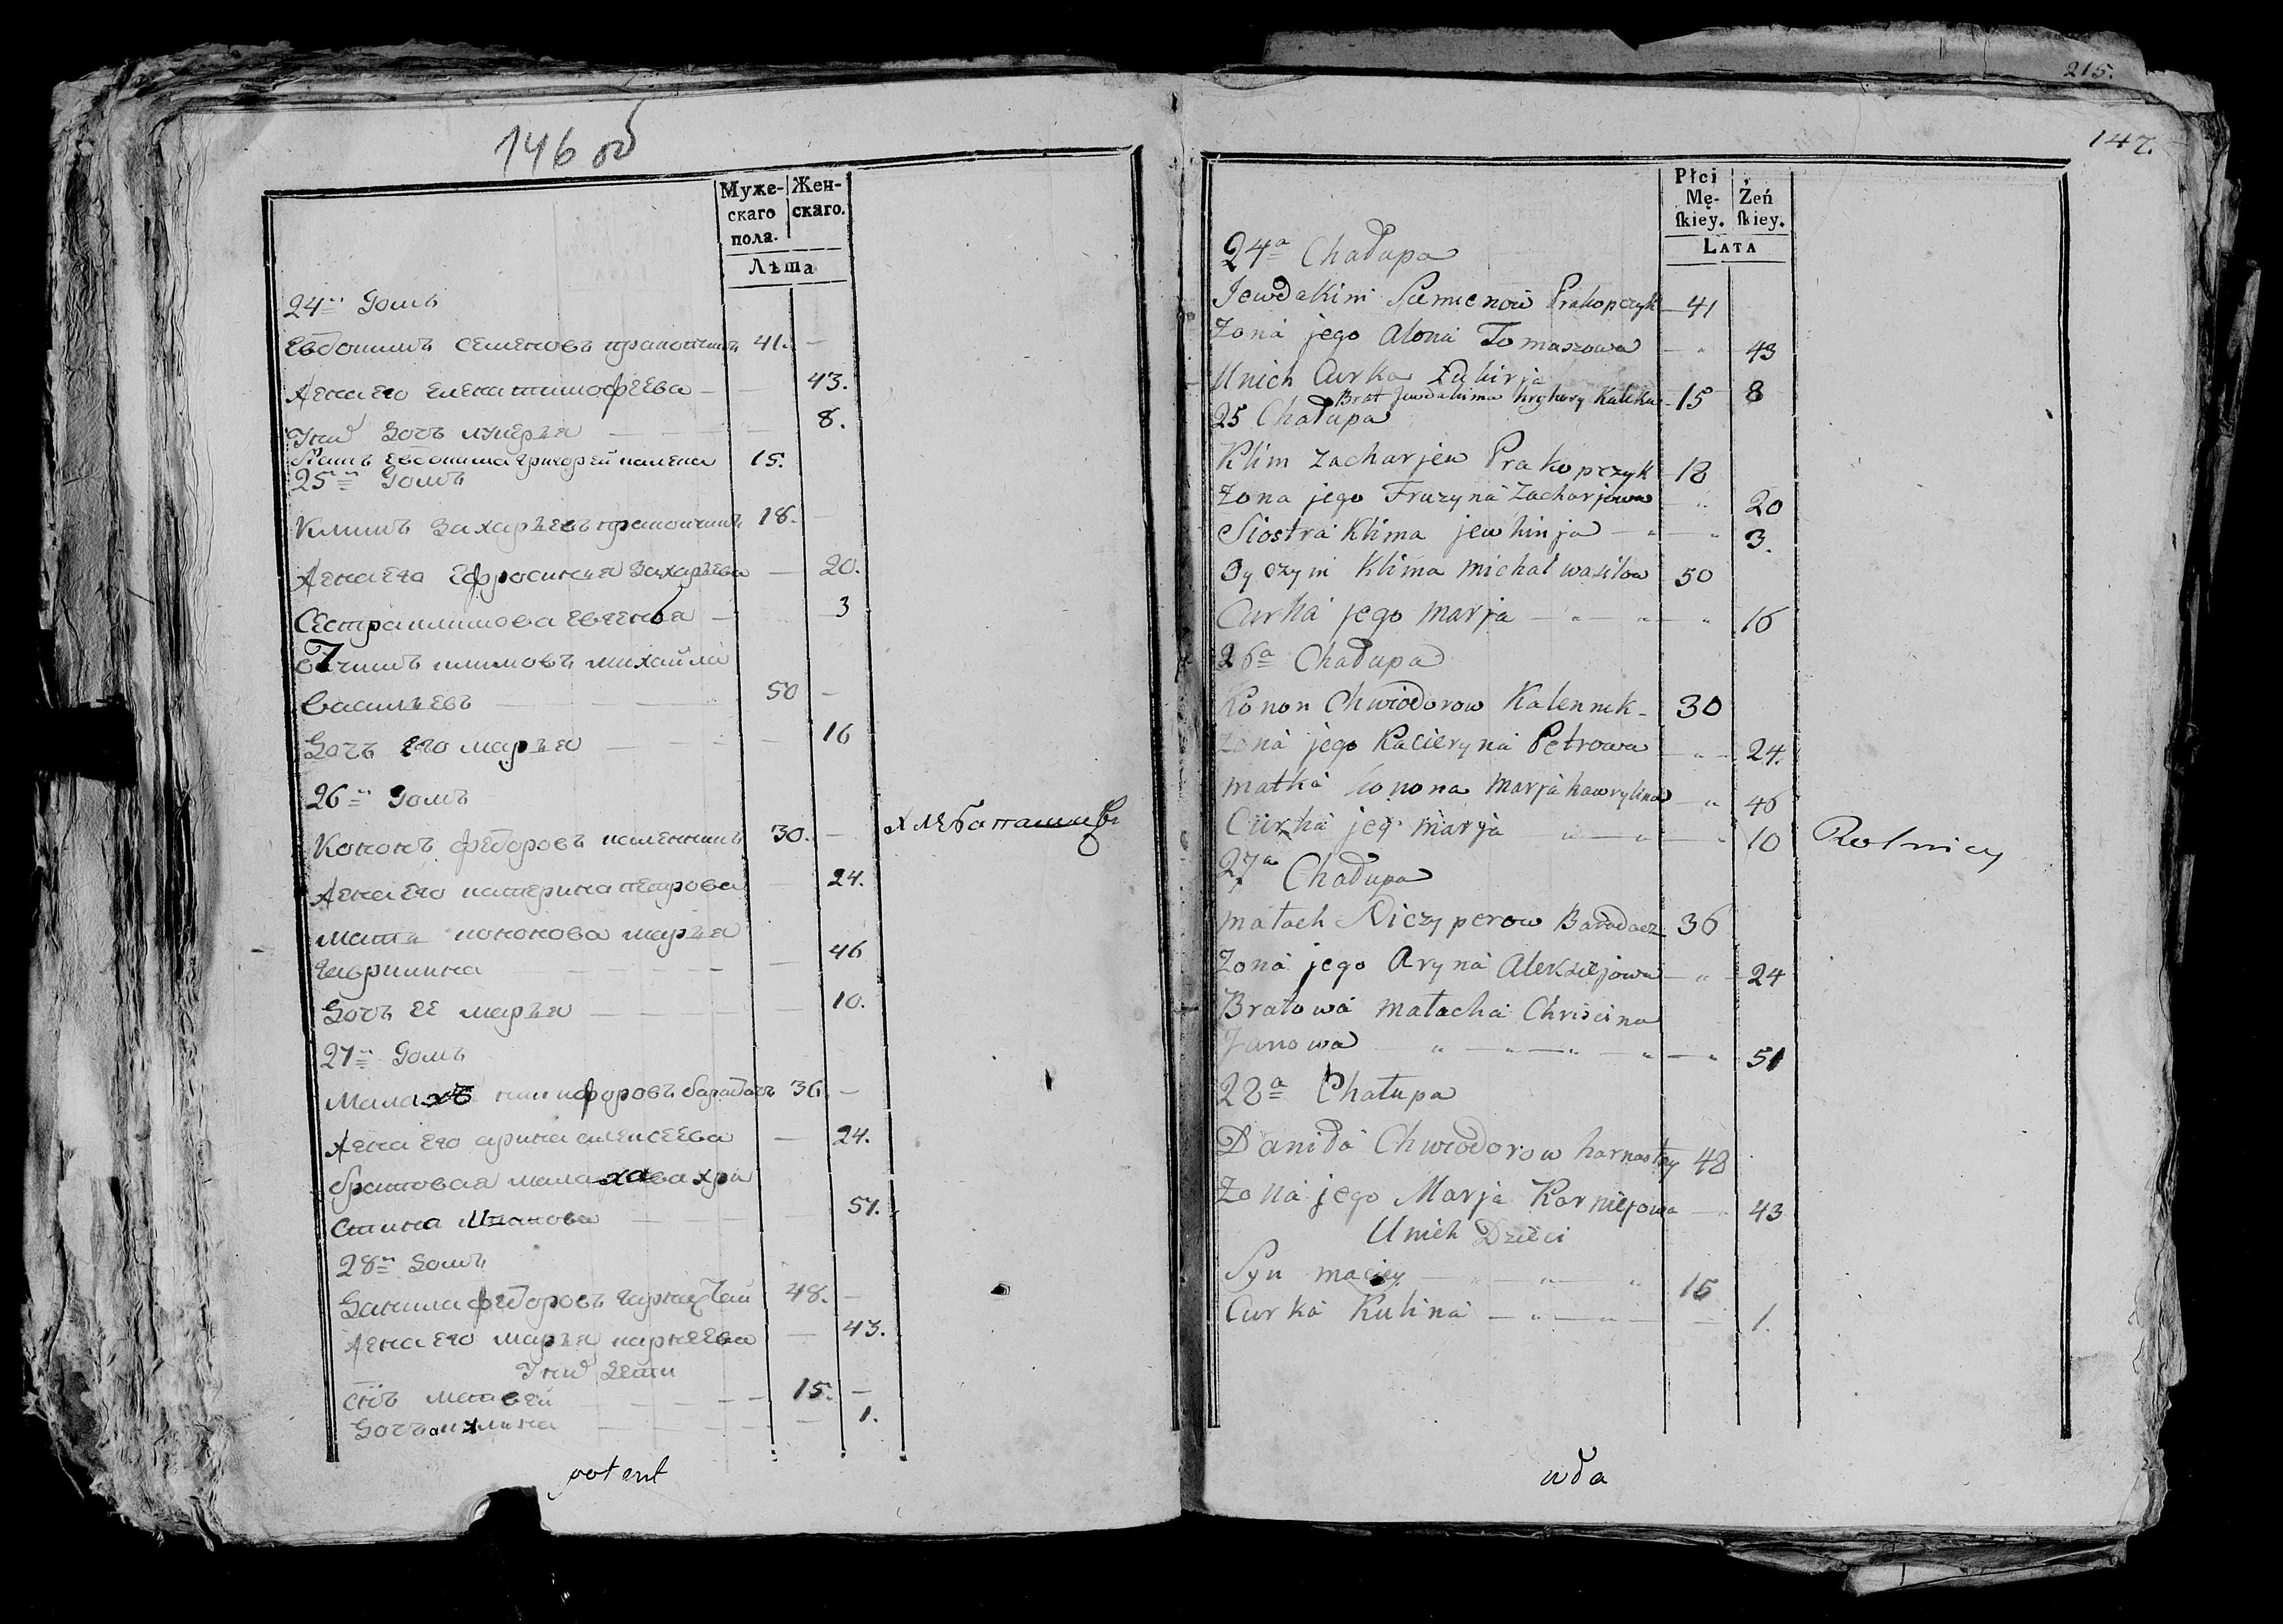 146 об
Муже-
скаго
пола.
Жен-
скаго.
Лѣта
24й Домъ
Евдокимъ Семеновъ пракопчикъ 41. —
Жена его Елена тимофеева — — 43.
У них Дочь лукерья — — — 8.
Братъ Евдокима Григорей калека 15.
25й Домъ
Климъ Захарьевъ пракопчикъ 18. —
Жена его Ефросинья Захарьева — 20.
Сестра климова Евгенья — 3
отчимъ климовъ михайла
Васильевъ — — — 50 —
Дочь его марья — — — — 16
26й Домъ
Кононъ федоровъ каленникъ 30. —
Жена его катерина петрова — 24.
мать кононова марья
гаврилина — — — — 46
Дочь ее марья — — — — 10.
27й Домъ
Малахъ никифоровъ барадачъ 36. —
Жена его арина алексеева — 24.
братовая малахава хри
стина Иванова — — — — 51.
28й Домъ
Данила федоровъ гарнастай 48. —
Жена его марья карнеева — 43.
У них дети
сынъ матвей — — — — 15. —
Дочь акулина — — — — 1.
хлебопашцы
potent
215.
147.
Płci
Mę-
skiey.
Żeń
skiey.
LATA
24a Chałupa
Jewdakim Samienow Prakopczyk — 41
Zona jego Alona Tomaszowa — „ — 43
Unich Curka Łukirja 8
Brat Jewdakima hryhory Kaleka — 15
25 Chałupa
Klim Zacharjew Prakopczyk — 18
Zona jego Fruzyna Zacharjowa — „ 20
Siostra Klima jewhinja — „ — „ 3.
Oyczym Klima michał wasilow 50
Curka jego marja — „ — „ — „ 16
26a Chałupa
Konon Chwiodorow Kalennik — 30
Zona jego Kacieryna Petrowa — „ — 24.
matka konona marja hawrylina — „ 46
Curka jey marja „ — „ — „ 10
27a Chałupa
małach Niczyperow Baradacz — 36
Zona jego Aryna Aleksiejowa — „ — 24
Bratowa małacha Chriscina
Janowa — „ — „ — „ — „ — „ 51
28a Chałupa
Daniła Chwiodorow harnastay 48
Zona jego Marja Karniejowa — „ 43
Unich Dzieci
Syn maciey — „ — „ — „ 15
Curka Kulina — „ — „ — — 1.
Rolnicy
wda